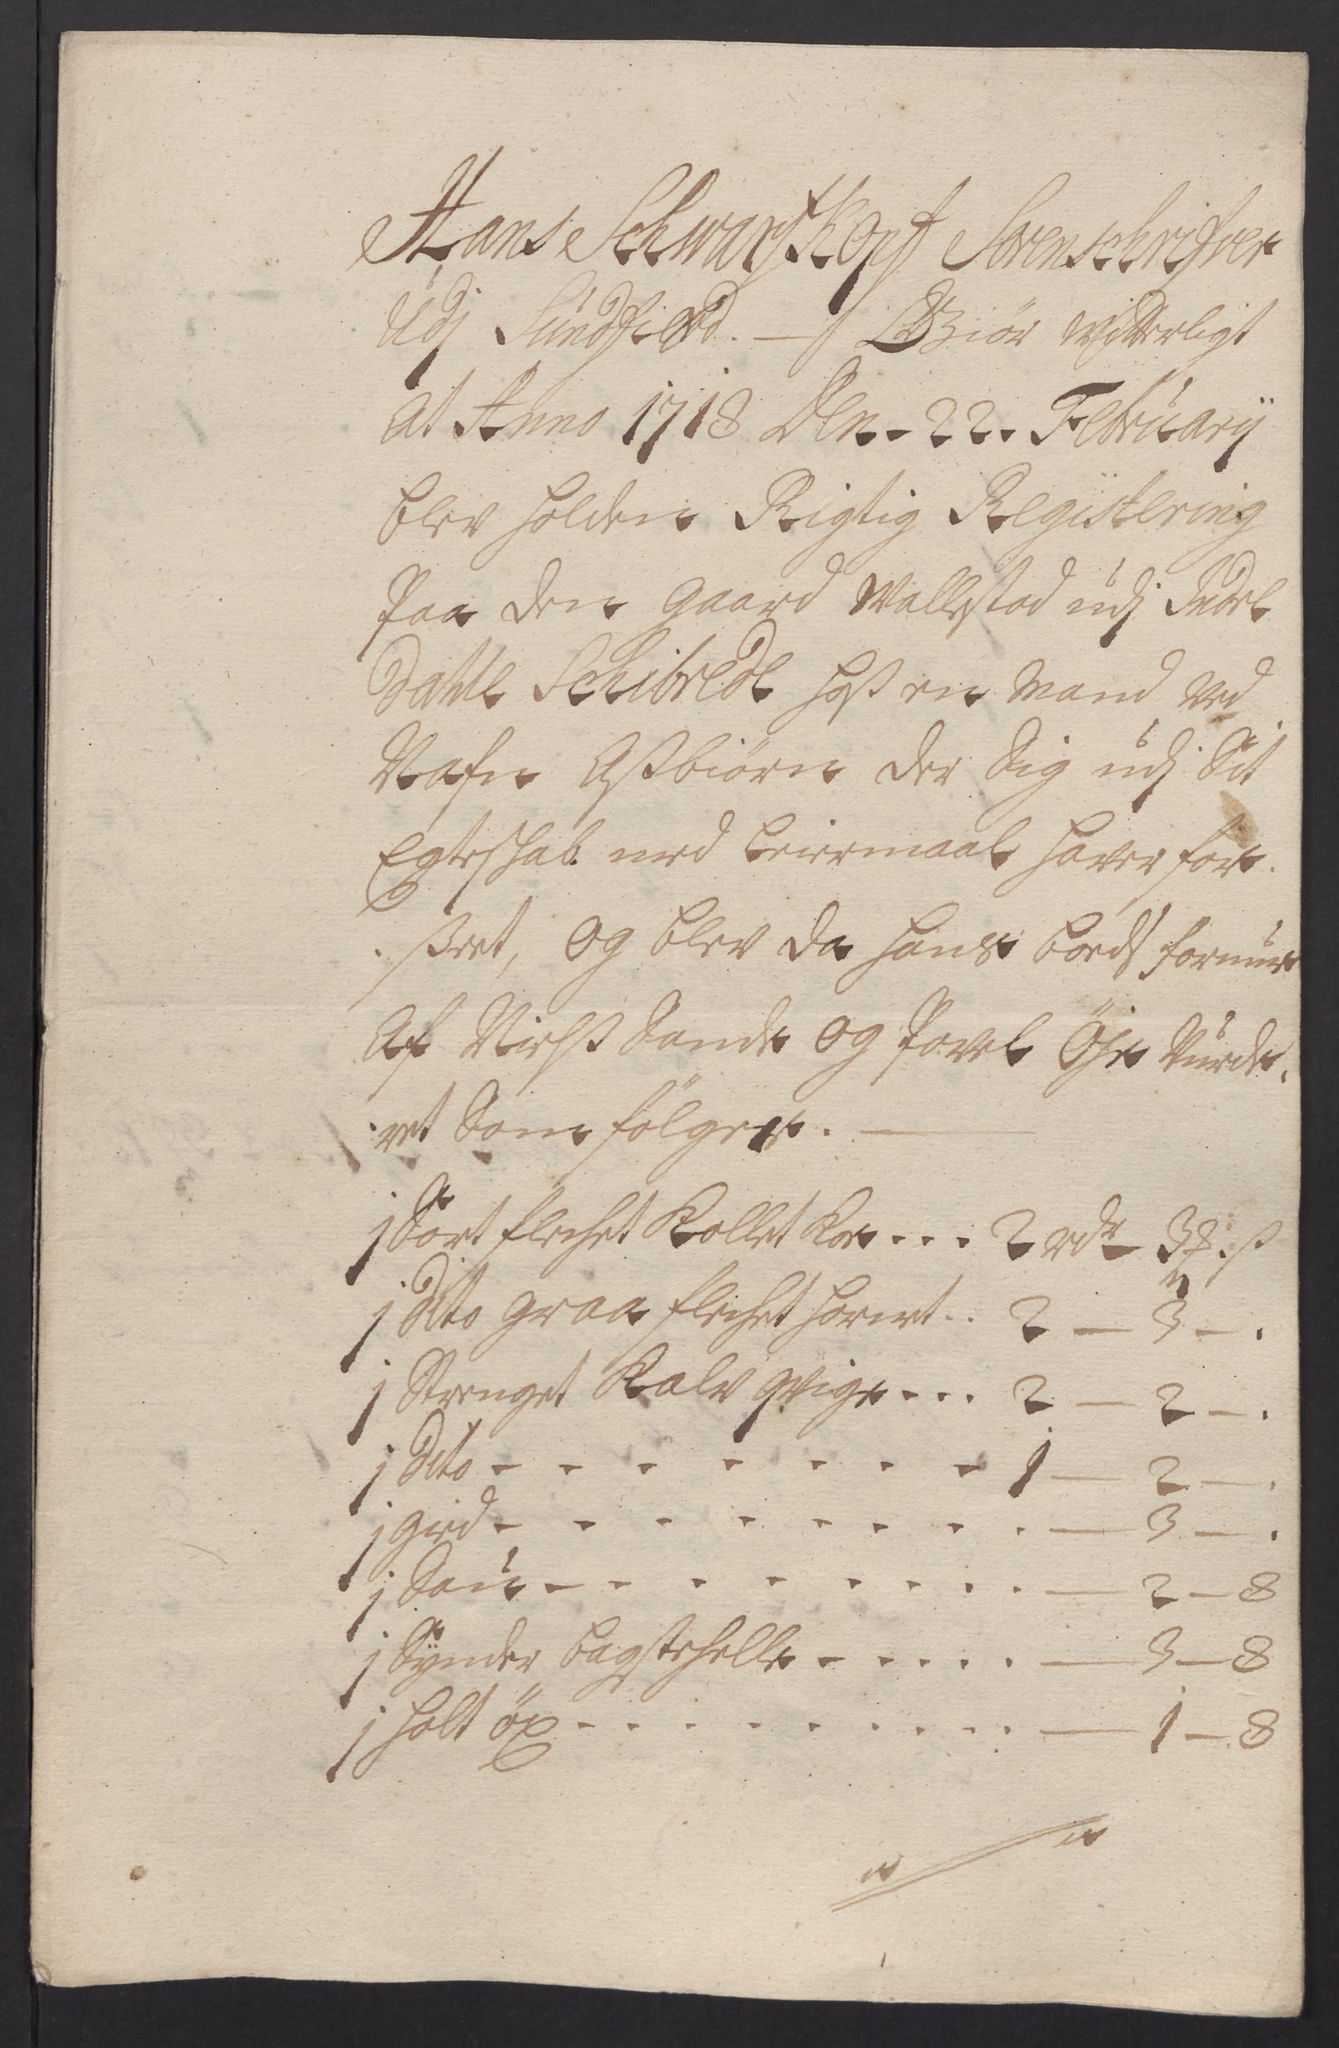 Hans Schwartzkopf Sorenschrifver
Udj Sundfiord. Giør witterligt
at Anno 1718 Den. 22. Februarÿ
blev holden Rigtig Registering
paa den gaard Wallestad udj Indre
Dahle Schibrede hoß en mand ved
Nafn Aßbiørn der Sig udj Sit
Egteschab med leiermaal haver for-
-seet, og blev da hans boeds formue
af Nielß Sande og Povel Öÿe Vurde-
-ret Som følger.
j Sort flechet Kollet Koe ... 2 rdr 3 ß
j dito graa flechet hornet .. 2 — 3 — .
j Strenget Kalv qvige ... 2 — 2 — .
j dito - - - - - - - 1 — 2 — .
j gied - - - - - - - — 3 — .
j Sou - - - - - - - — 2 — 8
j Sÿnder bagstehelle - - - - - — 3 — 8
j holt öx - - - - - - - — 1 — 8